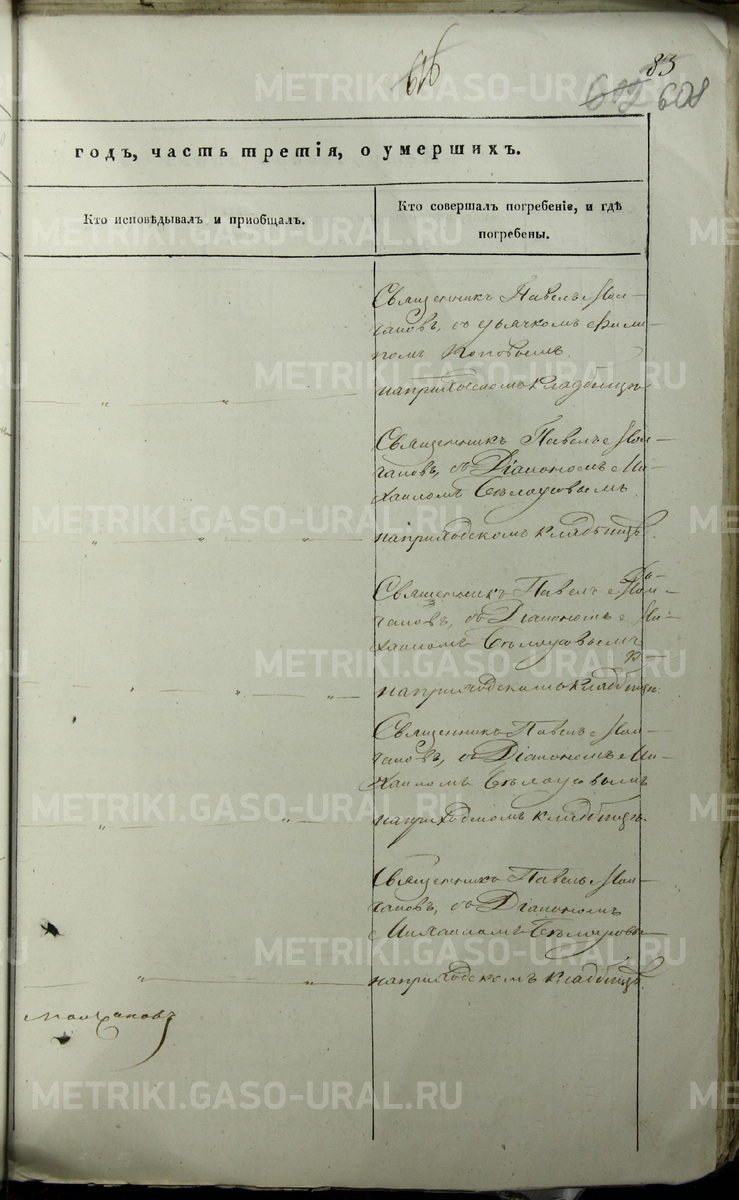 616
83
602 608
годъ, часть третія, о умершихъ.
Кто исповѣдывалъ и приобщалъ.
Кто совершалъ погребеніе, и гдѣ
погребены.
Священникъ Павелъ Мол-
чановъ, съ дьячкомъ Фили-
помъ Поповымъ
на приходскомъ кладбищѣ
Священникъ Павелъ Мол-
чановъ, съ Діакономъ Ми-
хаиломъ Бѣлоусовымъ
на приходскомъ кладбищѣ.
Священникъ Павелъ Мол-
чановъ, съ Діакономъ Ми-
хаиломъ Бѣлоусовымъ
на приходскомъ кладбищѣ.
Священникъ Павелъ Мол-
чановъ, съ Діакономъ Ми-
хаиломъ Бѣлоусовымъ
на приходскомъ кладбищѣ.
Священникъ Павелъ Мол-
чановъ, съ Діакономъ
Михаиломъ Бѣлоусовы-
на приходскомъ кладбищѣ.
Молчановъ
METRIKI.GASO-URAL.RU